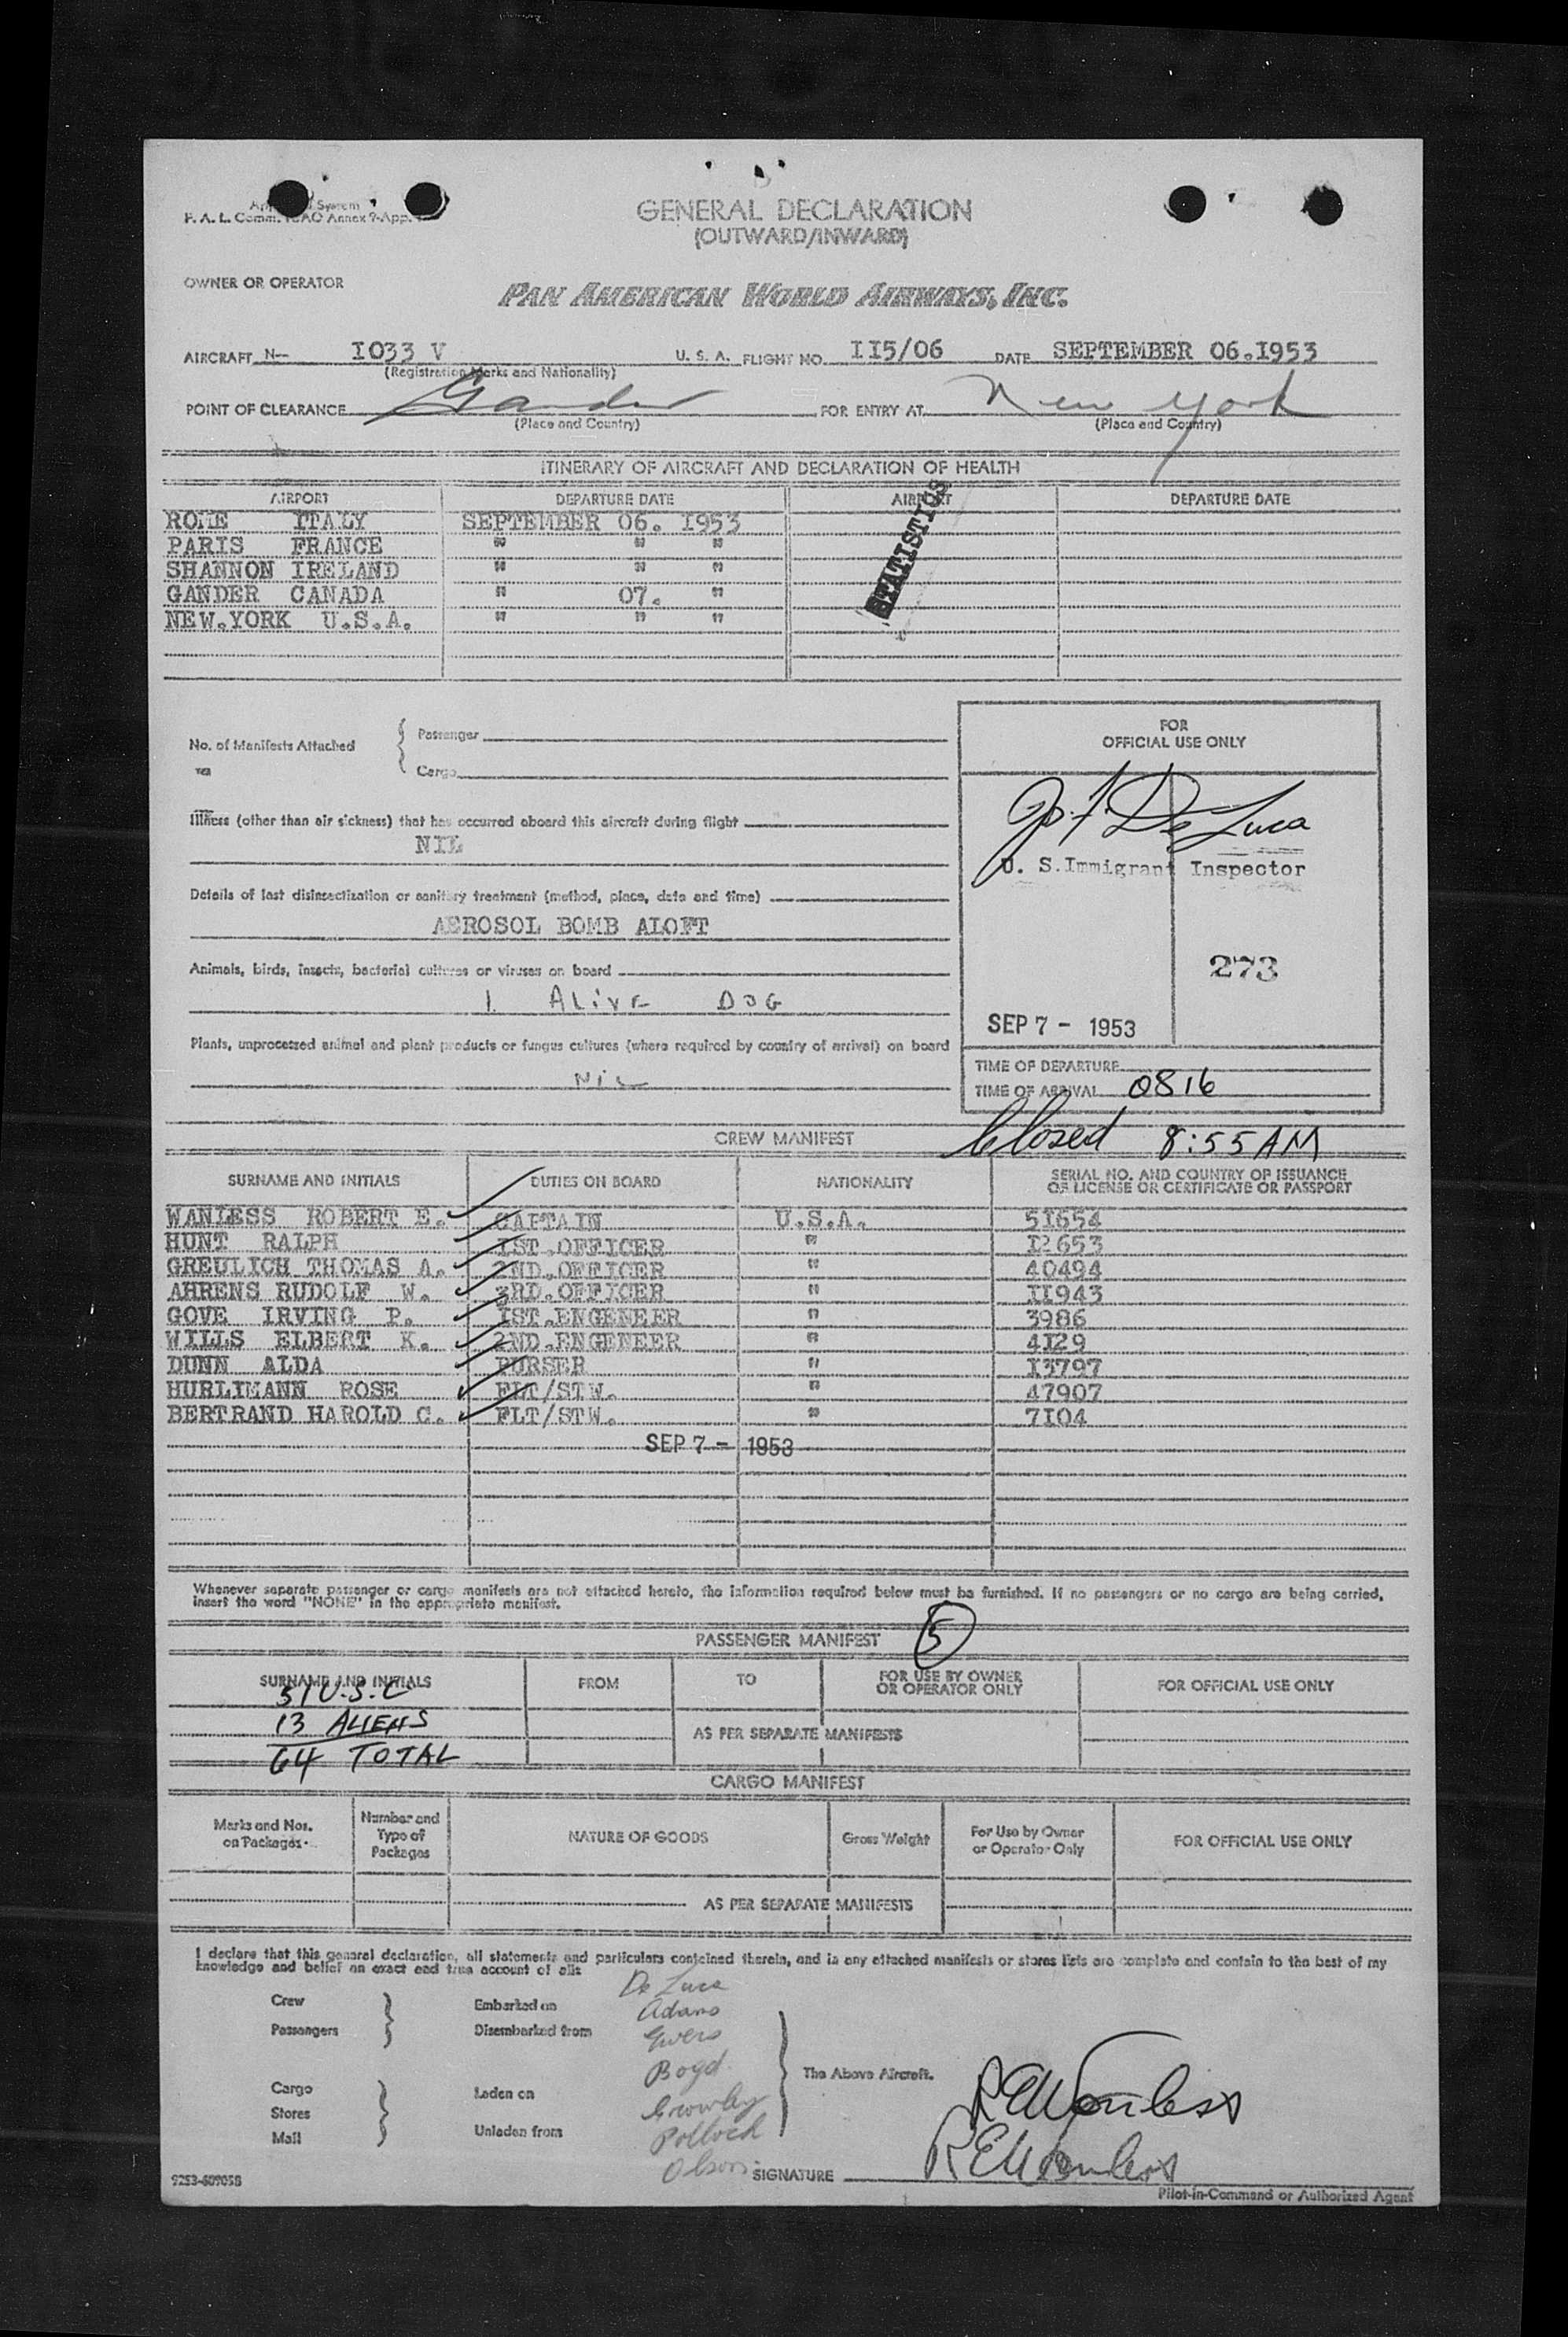 System
F. A. L. Comm. ICAO Annex 9-App.
GENERAL DECLARATION
(OUTWARD/INWARD)
OWNER OR OPERATOR
PAN AMERICAN WORLD AIRWAYS, INC.
AIRCRAFT N-- I033 V U. S. A. FLIGHT NO. II5/06 DATE SEPTEMBER 06.I953
(Registration Marks and Nationality)
POINT OF CLEARANCE Gander FOR ENTRY AT New York
(Place and Country) (Place and Country)
ITINERARY OF AIRCRAFT AND DECLARATION OF HEALTH
AIRPORT DEPARTURE DATE AIRPORT DEPARTURE DATE
ROME ITALY SEPTEMBER 06. I953
PARIS FRANCE " " "
SHANNON IRELAND " " "
GANDER CANADA " 07. "
NEW.YORK U.S.A. " " "
STATISTICS
No. of Manifests Attached { Passenger
Cargo
FOR
OFFICIAL USE ONLY
Illness (other than air sickness) that has occurred aboard this aircraft during flight
NIL
De Luca
U. S. Immigrant Inspector
Details of last disinsectization or sanitary treatment (method, place, date and time)
AEROSOL BOMB ALOFT
Animals, birds, insects, bacterial cultures or viruses on board
273
1 ALIVE DOG
SEP 7 - 1953
Plants, unprocessed animal and plant products or fungus cultures (where required by country of arrival) on board
NIL
TIME OF DEPARTURE
TIME OF ARRIVAL 0816
CREW MANIFEST Closed 8:55 AM
SURNAME AND INITIALS DUTIES ON BOARD NATIONALITY SERIAL NO. AND COUNTRY OF ISSUANCE
OF LICENSE OR CERTIFICATE OR PASSPORT
WANLESS ROBERT E. CAPTAIN U.S.A. 5I654
HUNT RALPH IST.OFFICER " I2653
GREULICH THOMAS A. 2ND.OFFICER " 40494
AHRENS RUDOLF W. 3RD.OFFICER " II943
GOVE IRVING P. IST.ENGENEER " 3986
WILLS ELBERT K. 2ND.ENGENEER " 4I29
DUNN ALDA PURSER " I3797
HURLIMANN ROSE FLT/STW. " 47907
BERTRAND HAROLD C. FLT/STW. " 7I04
SEP 7 - 1953
Whenever separate passenger or cargo manifests are not attached hereto, the information required below must be furnished. If no passengers or no cargo are being carried,
insert the word "NONE" in the appropriate manifest.
PASSENGER MANIFEST 5
SURNAME AND INITIALS FROM TO FOR USE BY OWNER
OR OPERATOR ONLY FOR OFFICIAL USE ONLY
51 U.S.C
13 ALIENS
AS PER SEPARATE MANIFESTS
64 TOTAL
CARGO MANIFEST
Marks and Nos.
on Packages Number and
Type of
Packages NATURE OF GOODS Gross Weight For Use by Owner
or Operator Only FOR OFFICIAL USE ONLY
AS PER SEPARATE MANIFESTS
I declare that this general declaration, all statements and particulars contained therein, and in any attached manifests or stores lists are complete and contain to the best of my
knowledge and belief an exact and true account of all:
De Luca
Crew Embarked on Adams
Passengers Disembarked from Ewers
Boyd
The Above Aircraft.
Cargo Laden on
Stores Crowley
Mail Unladen from Pollock
Olson
R E Wanless
SIGNATURE R E Wanless
9253-609058
Pilot-in-Command or Authorized Agent